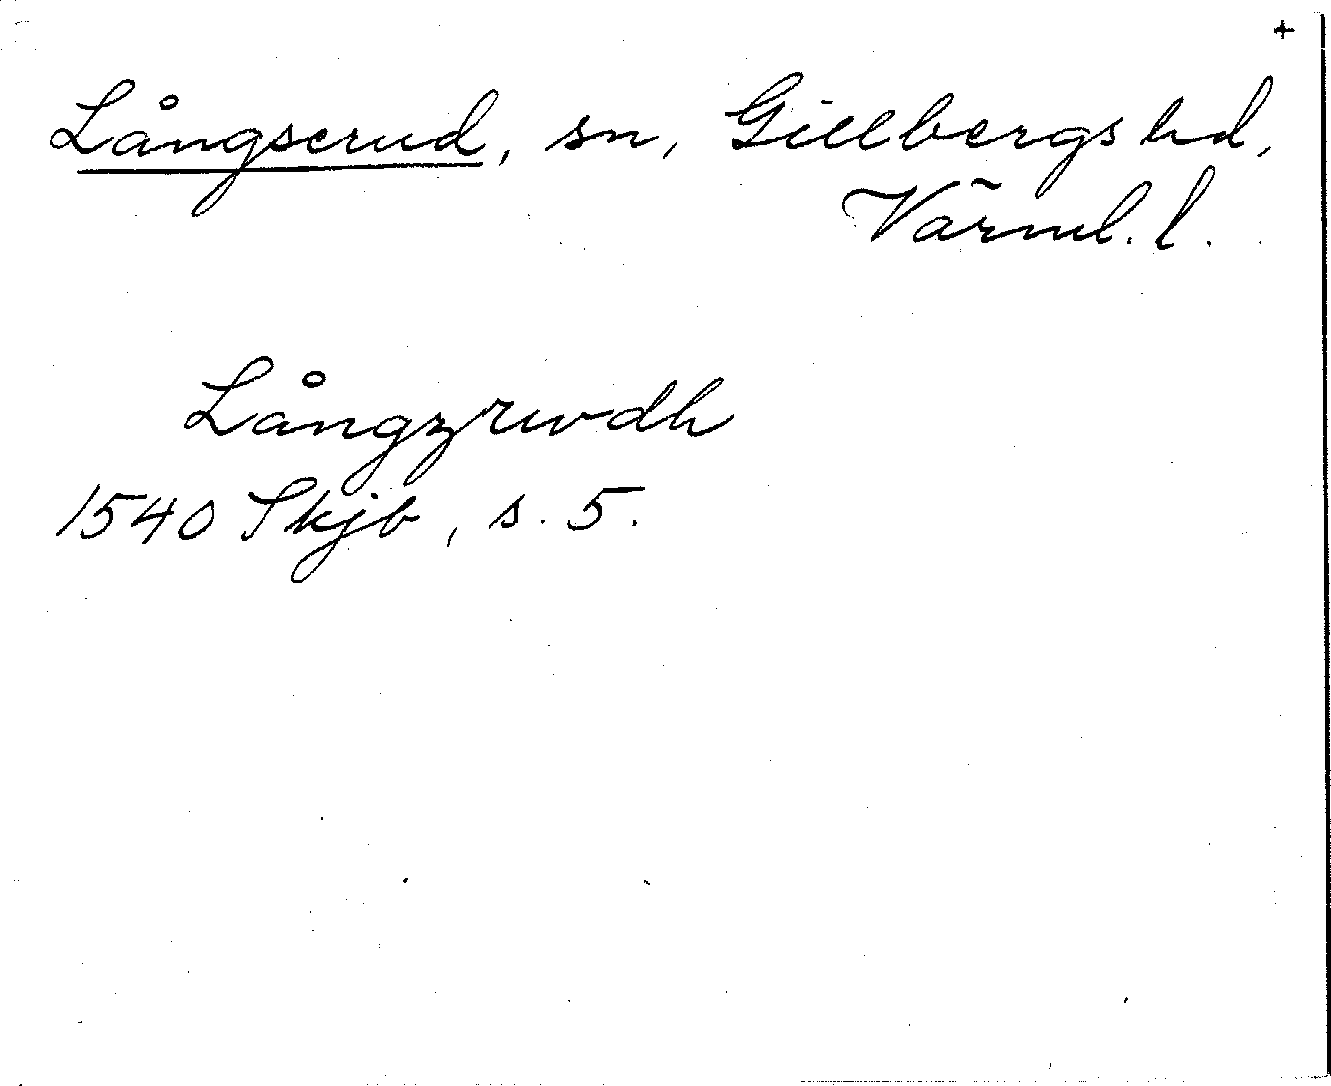 +
Långserud, sn, Gillbergs hd,
Värml. l.
Långzrwdh
1540 Skjb, s. 5.